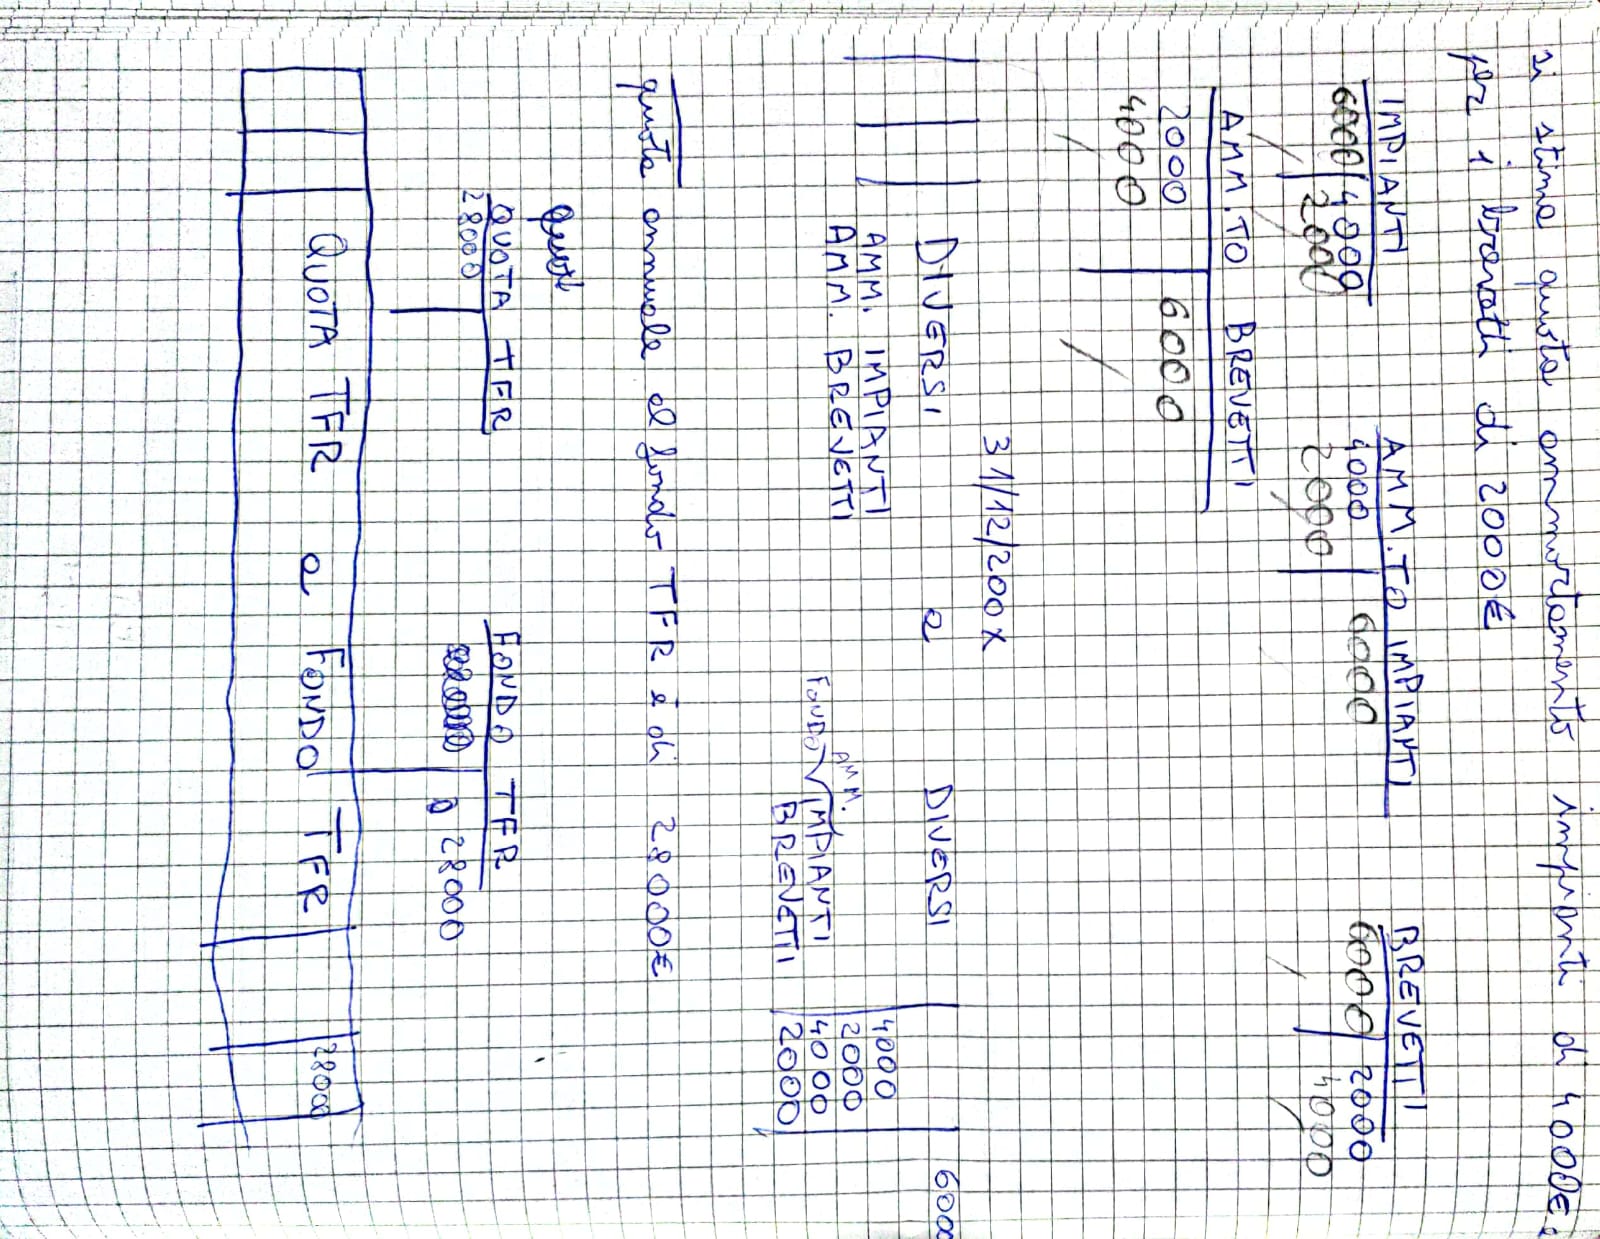 si stima quota ammortamento impianti di 4000€,
per i brevetti di 2000€
IMPIANTI
6000 4000
2000
AMM.TO IMPIANTI
4000 6000
2000
BREVETTI
6000 2000
4000
AMM.TO BREVETTI
2000 6000
4000
31/12/200X
DIVERSI a DIVERSI 6000
AMM. IMPIANTI 4000
AMM. BREVETTI 2000
AMM.
FONDO IMPIANTI 4000
BREVETTI 2000
quota annuale al fondo TFR è di 28000€
QUOTA TFR
28000
FONDO TFR
28000
QUOTA TFR a FONDO TFR 28000